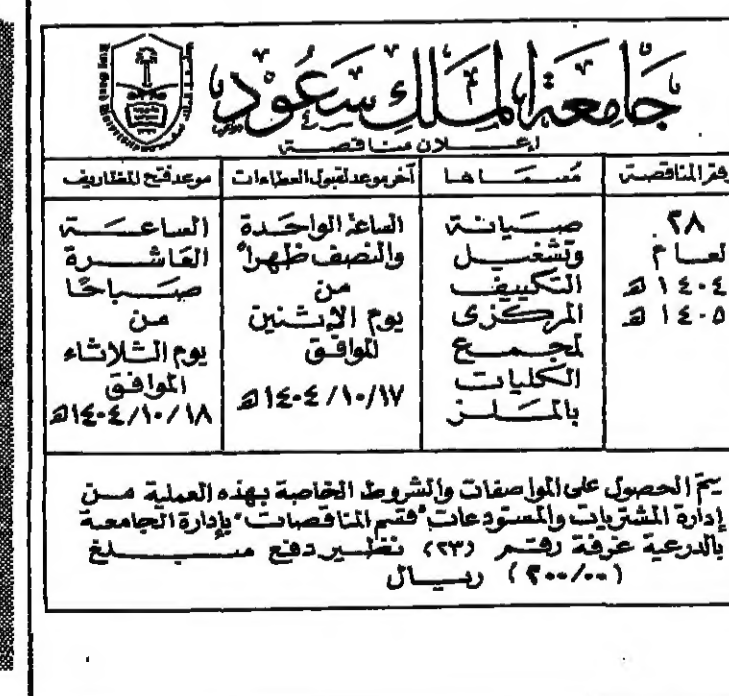 جامعة الملك سعود
إعلان مناقصة
رقم المناقصة
مسماها
آخر موعد لقبول العطاءات
موعد فتح المظاريف
٢٨
لعام
١٤٠٤هـ
١٤٠٥هـ
صيانة
وتشغيل
التكييف
المركزى
لمجمع
الكليات
بالملز
الساعة الواحدة
والنصف ظهراً
من
يوم الإثنين
الموافق
١٤٠٤/١٠/١٧هـ
الساعة
العاشرة
صباحًا
من
يوم الثلاثاء
الموافق
١٤٠٤/١٠/١٨هـ
يتم الحصول على المواصفات والشروط الخاصة بهذه العملية من
إدارة المشتريات والمستودعات "قسم المناقصات" بإدارة الجامعة
بالدرعية غرفة رقم (٢٣) نظير دفع مبلغ
ريال